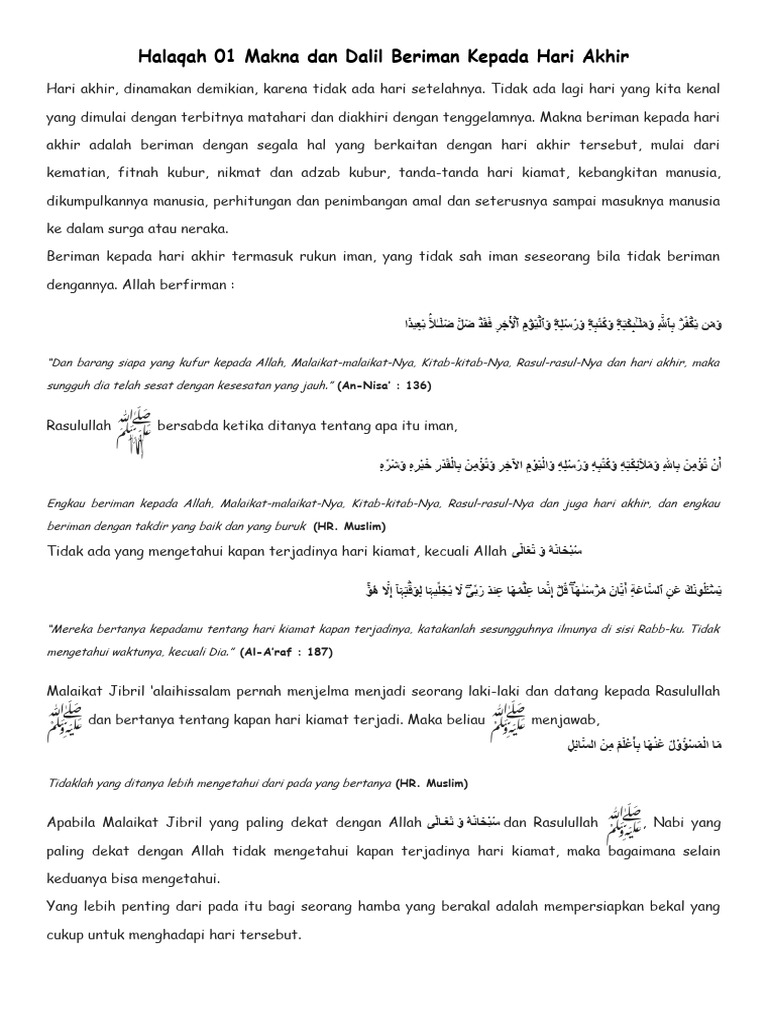 Halaqah 01 Makna dan Dalil Beriman Kepada Hari Akhir
Hari akhir, dinamakan demikian, karena tidak ada hari setelahnya. Tidak ada lagi hari yang kita kenal
yang dimulai dengan terbitnya matahari dan diakhiri dengan tenggelamnya. Makna beriman kepada hari
akhir adalah beriman dengan segala hal yang berkaitan dengan hari akhir tersebut, mulai dari
kematian, fitnah kubur, nikmat dan adzab kubur, tanda-tanda hari kiamat, kebangkitan manusia,
dikumpulkannya manusia, perhitungan dan penimbangan amal dan seterusnya sampai masuknya manusia
ke dalam surga atau neraka.
Beriman kepada hari akhir termasuk rukun iman, yang tidak sah iman seseorang bila tidak beriman
dengannya. Allah berfirman :
وَمَن يَكْفُرْ بِٱللَّهِ وَمَلَـٰٓئِكَتِهِۦ وَكُتُبِهِۦ وَرُسُلِهِۦ وَٱلْيَوْمِ ٱلْأَخِرِ فَقَدْ ضَلَّ ضَلَـٰلاً بَعِيدًا
“Dan barang siapa yang kufur kepada Allah, Malaikat-malaikat-Nya, Kitab-kitab-Nya, Rasul-rasul-Nya dan hari akhir, maka
sungguh dia telah sesat dengan kesesatan yang jauh.” (An-Nisa’ : 136)
Rasulullah ﷺ bersabda ketika ditanya tentang apa itu iman,
أَنْ تُؤْمِنَ بِاللهِ وَمَلاَئِكَتِهِ وَكُتُبِهِ وَرُسُلِهِ وَالْيَوْمِ الآخِرِ وَتُؤْمِنَ بِالْقَدَرِ خَيْرِهِ وَشَرِّهِ
Engkau beriman kepada Allah, Malaikat-malaikat-Nya, Kitab-kitab-Nya, Rasul-rasul-Nya dan juga hari akhir, dan engkau
beriman dengan takdir yang baik dan yang buruk (HR. Muslim)
Tidak ada yang mengetahui kapan terjadinya hari kiamat, kecuali Allah سُبْحَانَهُ وَ تَعَالَى
يَسْـَٔلُونَكَ عَنِ ٱلسَّاعَةِ أَيَّانَ مُرْسَىٰهَاۖ قُلْ إِنَّمَا عِلْمُهَا عِندَ رَبِّىۖ لَا يُجَلِّيهَا لِوَقْتِهَآ إِلَّا هُوَۚ
“Mereka bertanya kepadamu tentang hari kiamat kapan terjadinya, katakanlah sesungguhnya ilmunya di sisi Rabb-ku. Tidak
mengetahui waktunya, kecuali Dia.” (Al-A’raf : 187)
Malaikat Jibril ‘alaihissalam pernah menjelma menjadi seorang laki-laki dan datang kepada Rasulullah
ﷺ dan bertanya tentang kapan hari kiamat terjadi. Maka beliau ﷺ menjawab,
مَا الْمَسْؤُوْلُ عَنْهَا بِأَعْلَمَ مِنَ السَّائِلِ
Tidaklah yang ditanya lebih mengetahui dari pada yang bertanya (HR. Muslim)
Apabila Malaikat Jibril yang paling dekat dengan Allah سُبْحَانَهُ وَ تَعَالَى dan Rasulullah ﷺ, Nabi yang
paling dekat dengan Allah tidak mengetahui kapan terjadinya hari kiamat, maka bagaimana selain
keduanya bisa mengetahui.
Yang lebih penting dari pada itu bagi seorang hamba yang berakal adalah mempersiapkan bekal yang
cukup untuk menghadapi hari tersebut.